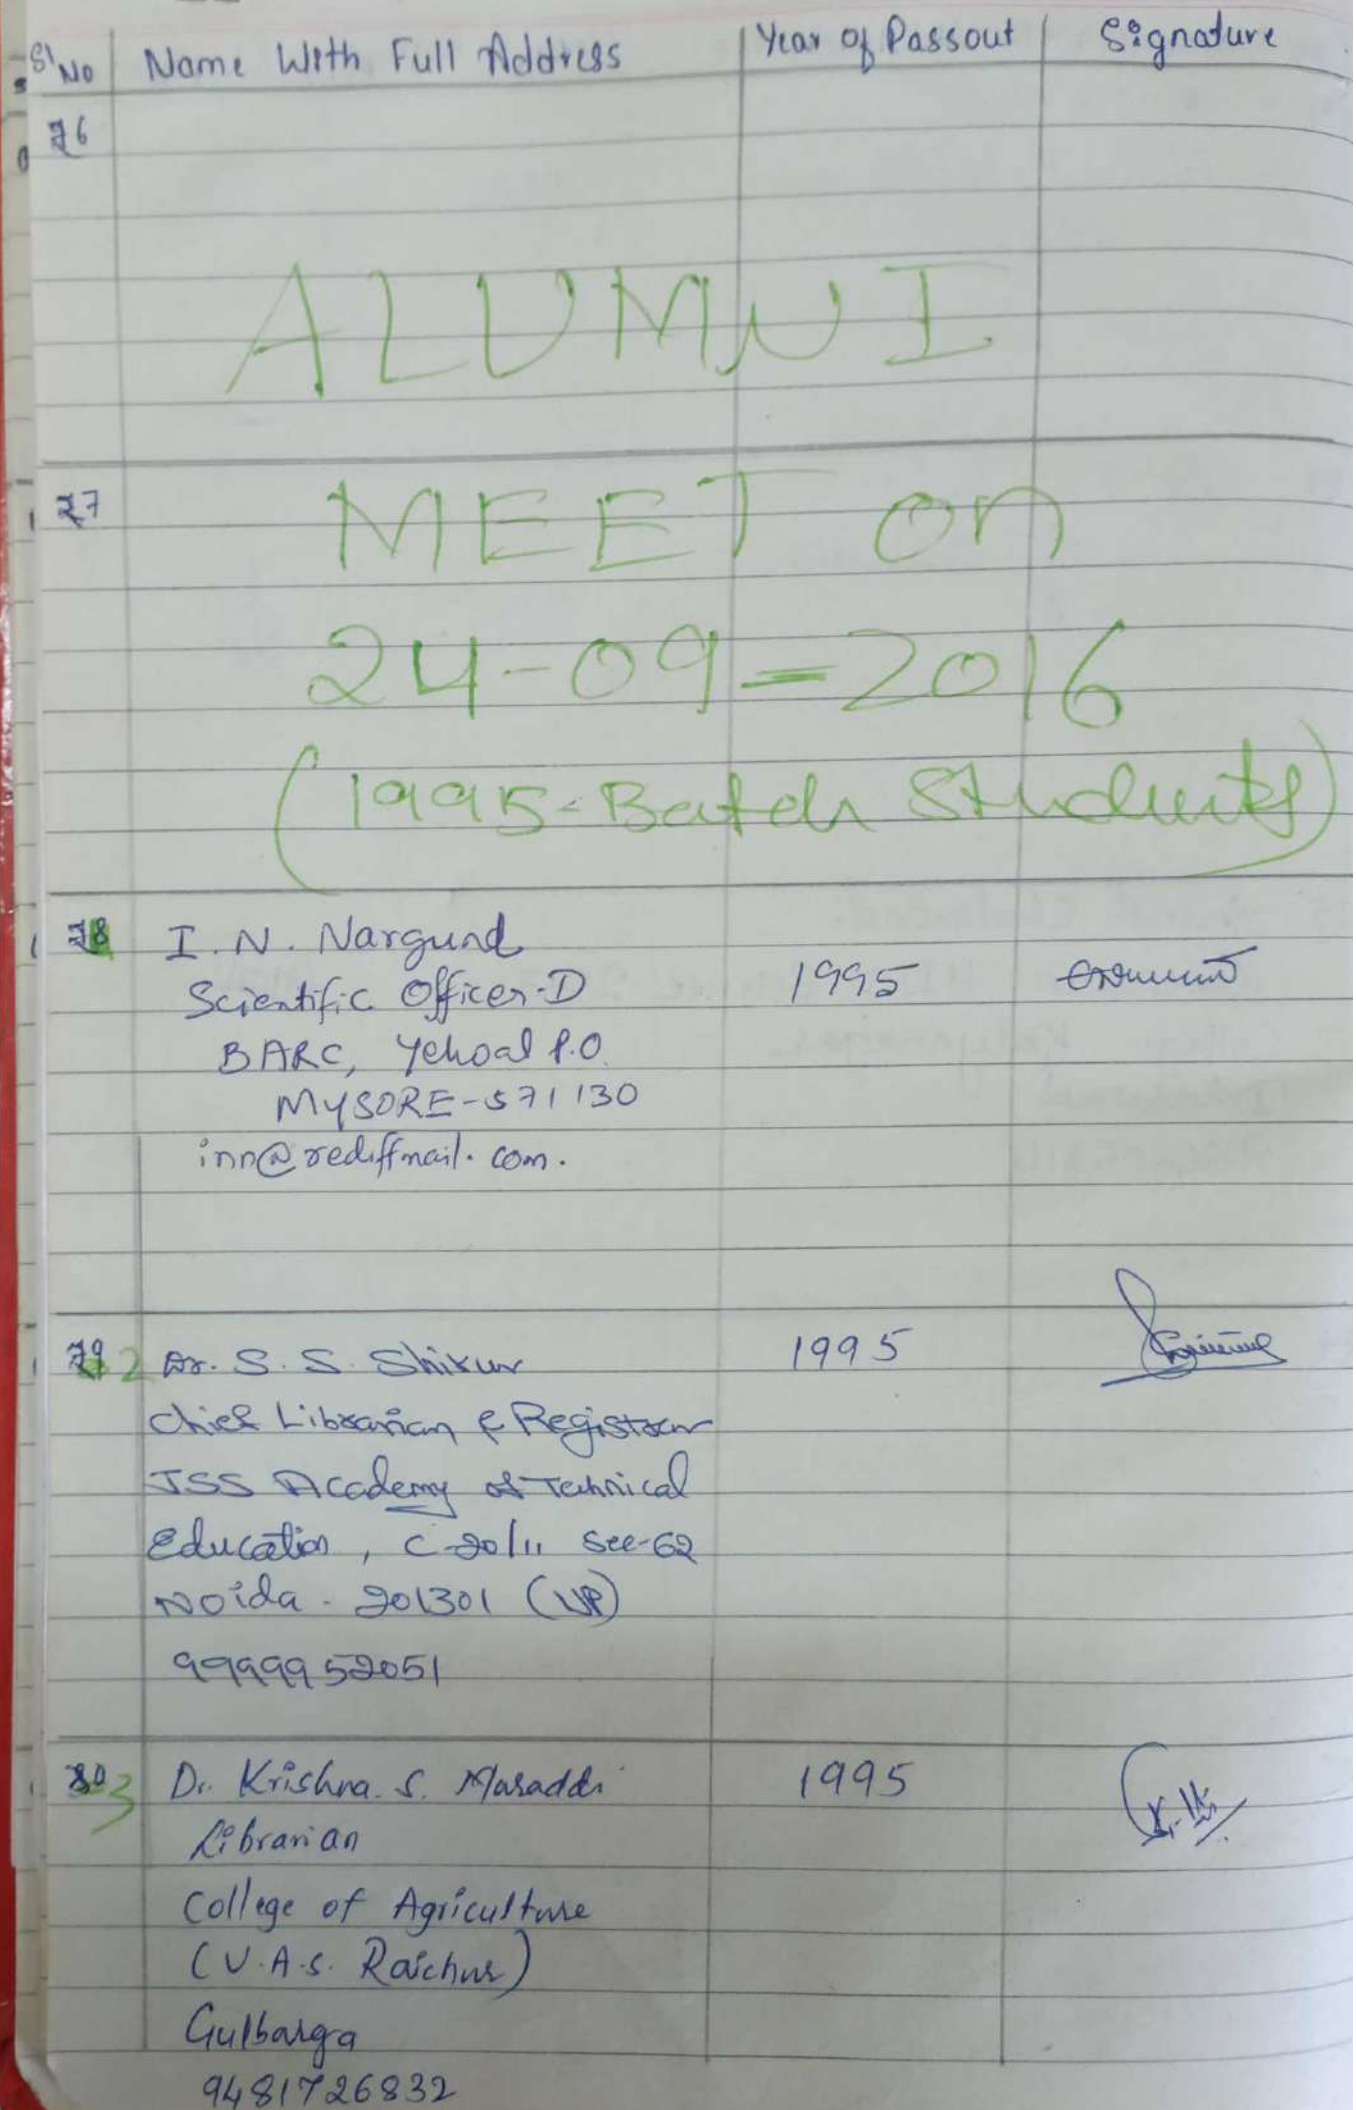 Sl No Name With Full Address Year of Passout Signature
76
ALUMNI
77 MEET on
24-09-2016
(1995-Batch Students)
78 I. N. Nargund 1995
Scientific Officer-D
BARC, Yelwal P.O.
MYSORE-571130
inn@rediffmail.com.
79 2 Dr. S. S. Shirur 1995
Chief Librarian & Registrar
JSS Academy of Technical
Education, C-20/11 Sec-62
Noida - 201301 (UP)
9999952051
80 3 Dr. Krishna. S. Maraddi 1995
Librarian
College of Agriculture
(U.A.S. Raichur)
Gulbarga
9481726832